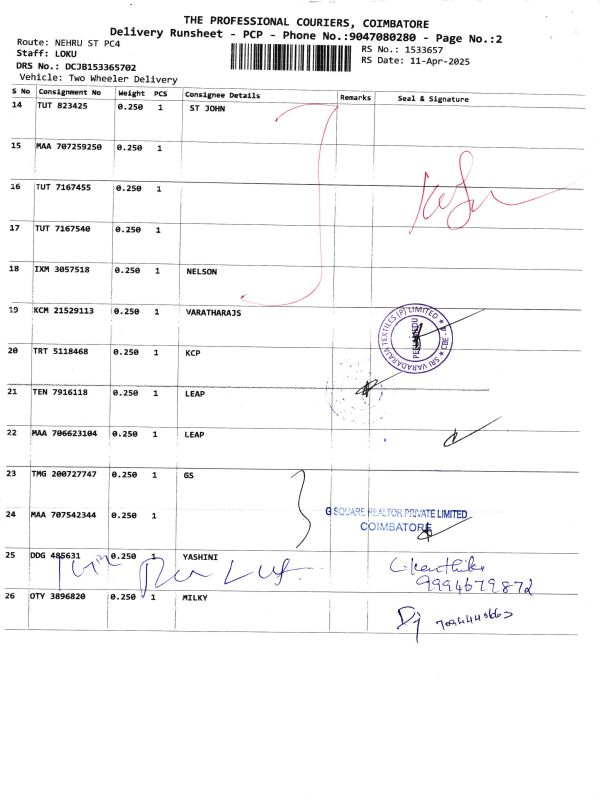 THE PROFESSIONAL COURIERS, COIMBATORE
Delivery Runsheet - PCP - Phone No.:9047080280 - Page No.:2
Route: NEHRU ST PC4
Staff: LOKU
DRS No.: DCJB153365702
Vehicle: Two Wheeler Delivery
RS No.: 1533657
RS Date: 11-Apr-2025
S No Consignment No Weight PCS Consignee Details Remarks Seal & Signature
14 TUT 823425 0.250 1 ST JOHN
15 MAA 707259250 0.250 1
16 TUT 7167455 0.250 1
17 TUT 7167540 0.250 1
18 IXM 3057518 0.250 1 NELSON
19 KCM 21529113 0.250 1 VARATHARAJS
SRI VARADARAJA TEXTILES (P) LIMITED ★ CBE - 4 ★
20 TRT 5118468 0.250 1 KCP
21 TEN 7916118 0.250 1 LEAP
22 MAA 706623104 0.250 1 LEAP
23 TMG 200727747 0.250 1 GS
24 MAA 707542344 0.250 1
G SQUARE REALTOR PRIVATE LIMITED
COIMBATORE
25 DDG 485631 0.250 1 YASHINI
9994679872
26 OTY 3896820 0.250 1 MILKY